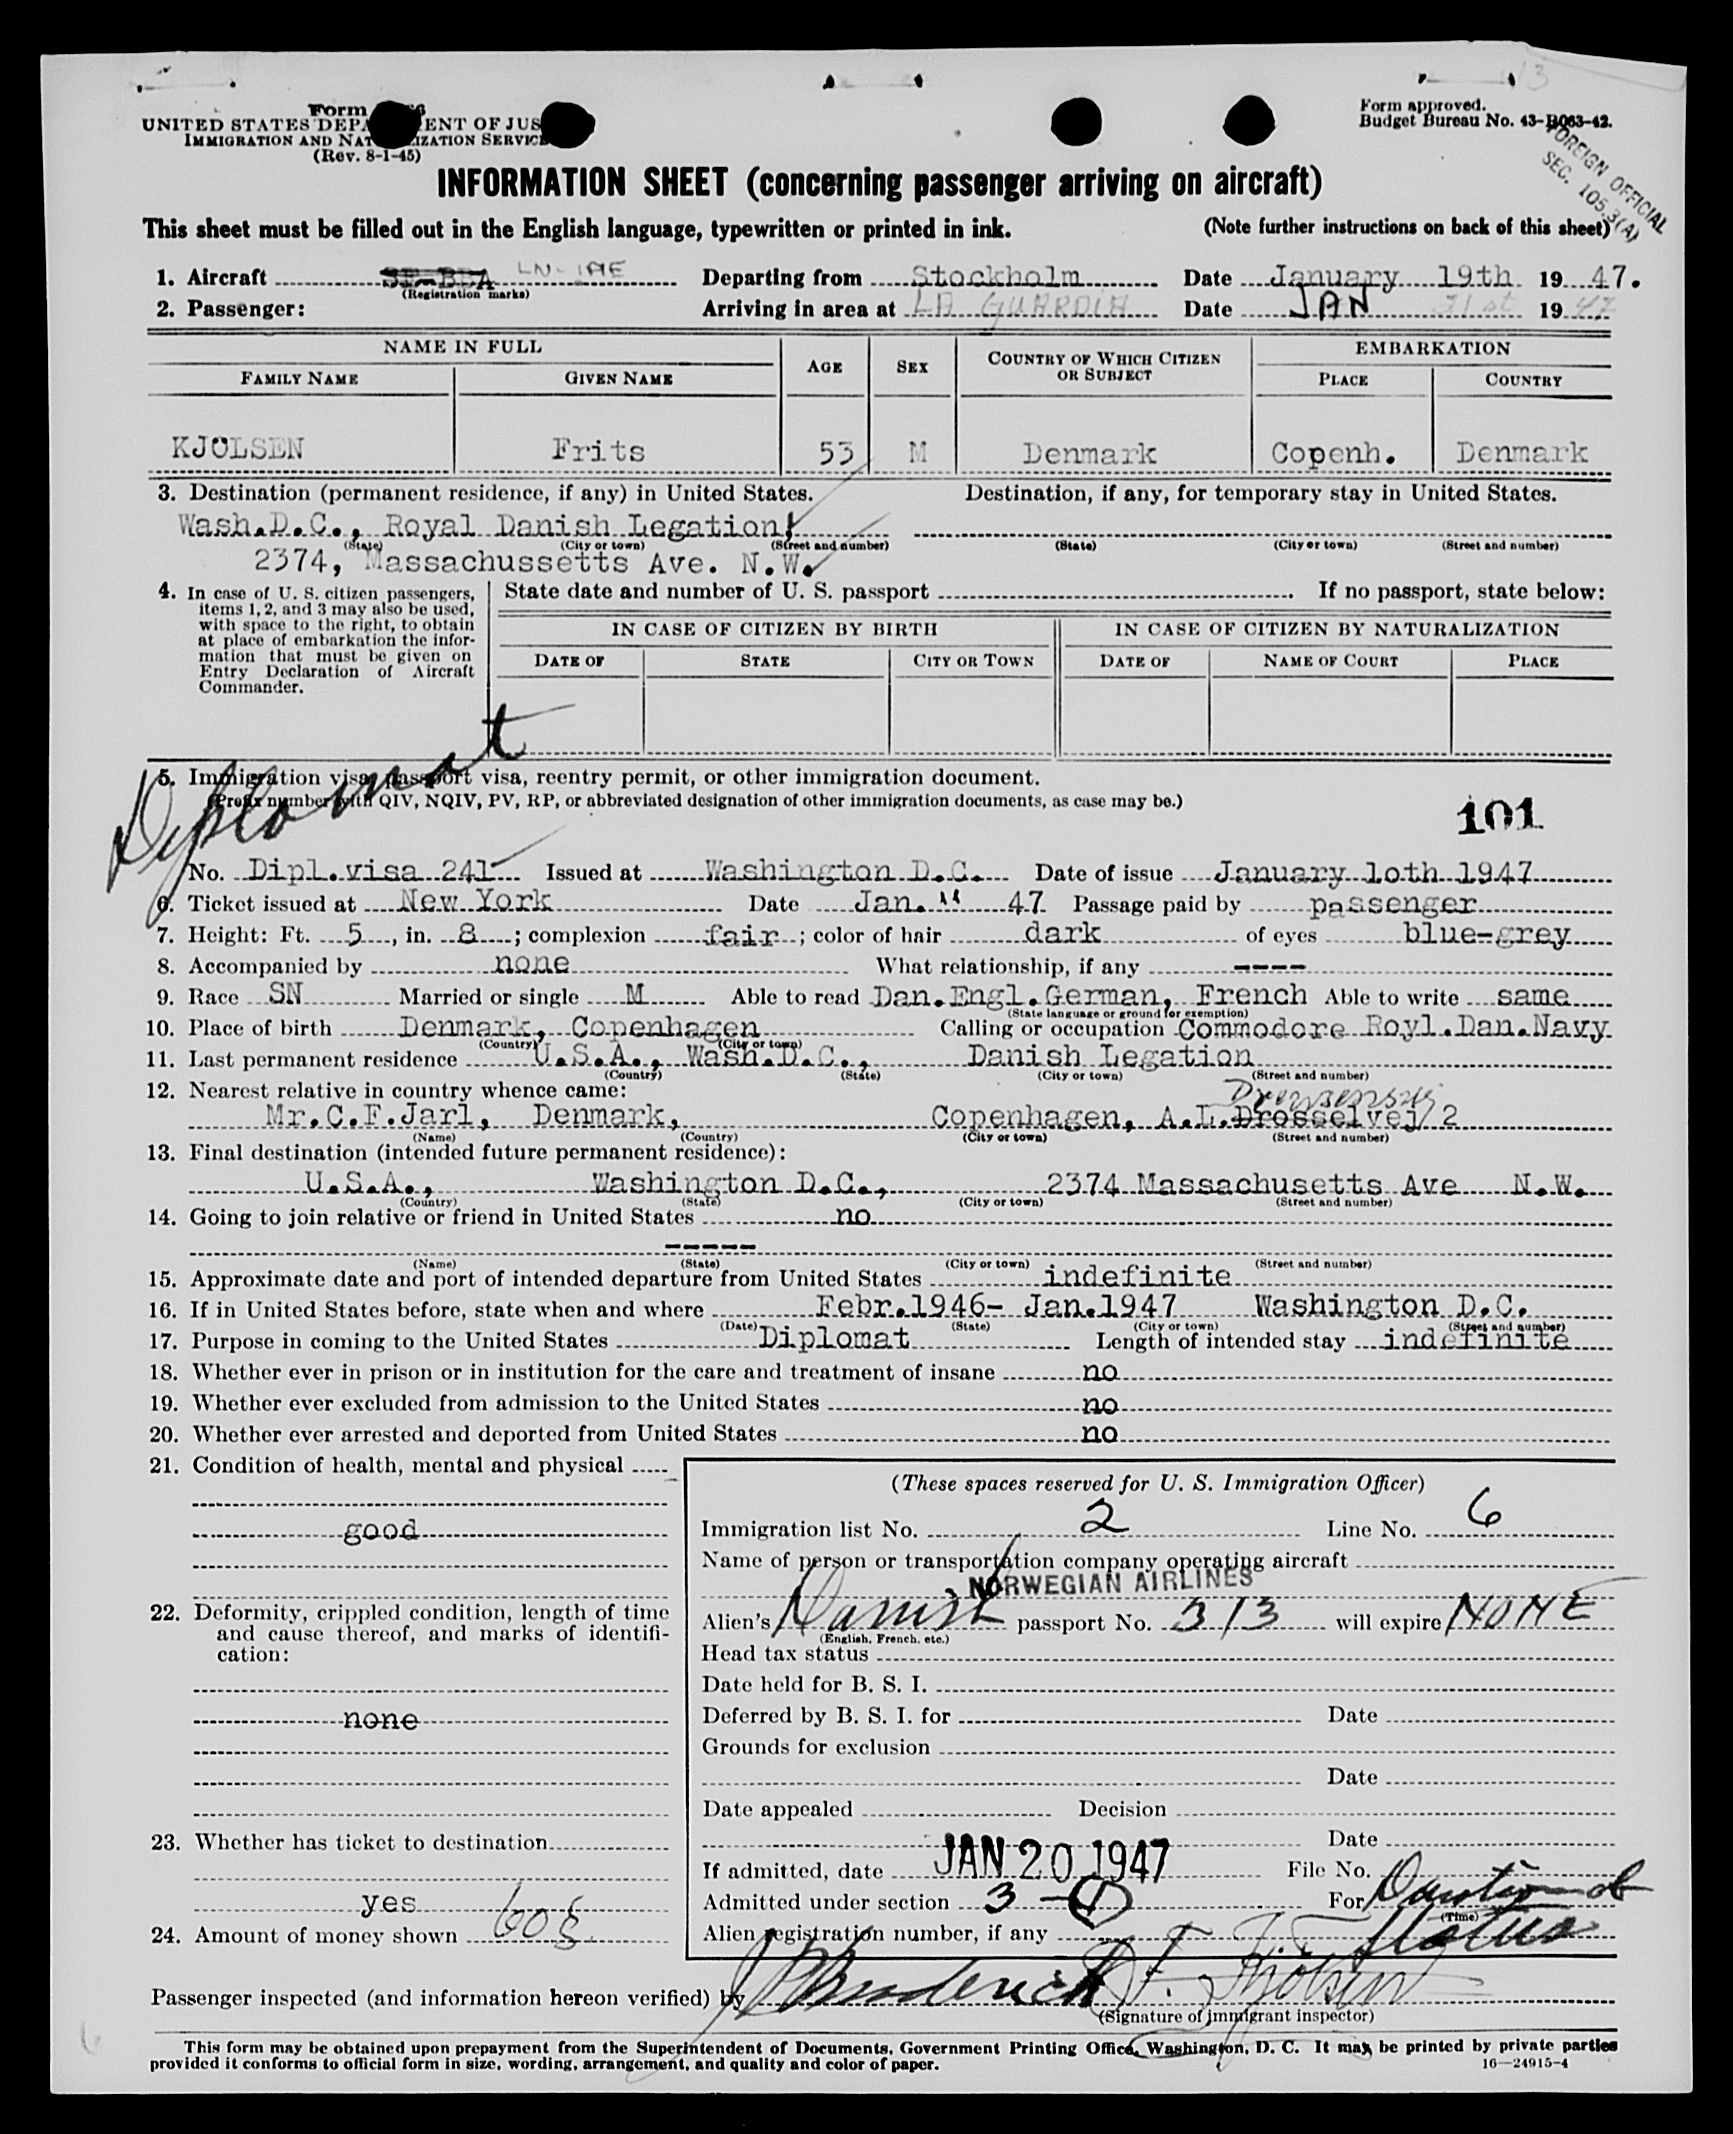 Form
UNITED STATES DEPA ENT OF JUS
IMMIGRATION AND NAT IZATION SERVICE
(Rev. 8-1-45)
Form approved.
Budget Bureau No. 43-R063-42.
FOREIGN OFFICIAL
SEC. 105.3(A)
INFORMATION SHEET (concerning passenger arriving on aircraft)
This sheet must be filled out in the English language, typewritten or printed in ink. (Note further instructions on back of this sheet)
1. Aircraft LN-IAE Departing from Stockholm Date January 19th 1947.
(Registration marks)
2. Passenger: Arriving in area at LA GUARDIA Date JAN 1947
NAME IN FULL AGE SEX COUNTRY OF WHICH CITIZEN OR SUBJECT EMBARKATION
FAMILY NAME GIVEN NAME PLACE COUNTRY
KJOLSEN Frits 53 M Denmark Copenh. Denmark
3. Destination (permanent residence, if any) in United States. Destination, if any, for temporary stay in United States.
Wash.D.C., Royal Danish Legation,
(State) (City or town) (Street and number) (State) (City or town) (Street and number)
2374, Massachussetts Ave. N.W.
4. In case of U. S. citizen passengers, items 1, 2, and 3 may also be used, with space to the right, to obtain at place of embarkation the information that must be given on Entry Declaration of Aircraft Commander.
State date and number of U. S. passport . If no passport, state below:
IN CASE OF CITIZEN BY BIRTH IN CASE OF CITIZEN BY NATURALIZATION
DATE OF STATE CITY OR TOWN DATE OF NAME OF COURT PLACE
Diplomat
5. Immigration visa, passport visa, reentry permit, or other immigration document.
(Prefix number with QIV, NQIV, PV, RP, or abbreviated designation of other immigration documents, as case may be.)
101
No. Dipl.visa 241 Issued at Washington D.C. Date of issue January 1oth 1947
6. Ticket issued at New York Date Jan. 47 Passage paid by passenger
7. Height: Ft. 5, in. 8; complexion fair; color of hair dark of eyes blue-grey
8. Accompanied by none What relationship, if any ----
9. Race SN Married or single M Able to read Dan.Engl.German, French Able to write same
(State language or ground for exemption)
10. Place of birth Denmark, Copenhagen Calling or occupation Commodore Royl.Dan.Navy
(Country) (City or town)
11. Last permanent residence U.S.A., Wash.D.C., Danish Legation
(Country) (State) (City or town) (Street and number)
12. Nearest relative in country whence came:
Mr.C.F.Jarl, Denmark, Copenhagen, A.L.Drosselvej 2
(Name) (Country) (City or town) (Street and number)
13. Final destination (intended future permanent residence):
U.S.A., Washington D.C., 2374 Massachusetts Ave N.W.
(Country) (State) (City or town) (Street and number)
14. Going to join relative or friend in United States no
-----
(Name) (State) (City or town) (Street and number)
15. Approximate date and port of intended departure from United States indefinite
16. If in United States before, state when and where Febr.1946- Jan.1947 Washington D.C.
(Date) (State) (City or town) (Street and number)
17. Purpose in coming to the United States Diplomat Length of intended stay indefinite
18. Whether ever in prison or in institution for the care and treatment of insane no
19. Whether ever excluded from admission to the United States no
20. Whether ever arrested and deported from United States no
21. Condition of health, mental and physical
good
22. Deformity, crippled condition, length of time and cause thereof, and marks of identification:
none
23. Whether has ticket to destination
yes
24. Amount of money shown 60$
(These spaces reserved for U. S. Immigration Officer)
Immigration list No. 2 Line No. 6
Name of person or transportation company operating aircraft
NORWEGIAN AIRLINES
Alien's Danish passport No. 313 will expire NONE
(English, French, etc.)
Head tax status
Date held for B. S. I.
Deferred by B. S. I. for Date
Grounds for exclusion
Date
Date appealed Decision
Date
If admitted, date JAN 20 1947 File No.
Admitted under section 3-(1) For Duration of
(Time)
Alien registration number, if any Status
Passenger inspected (and information hereon verified) by
(Signature of immigrant inspector)
This form may be obtained upon prepayment from the Superintendent of Documents, Government Printing Office, Washington, D. C. It may be printed by private parties
provided it conforms to official form in size, wording, arrangement, and quality and color of paper.
16—24915-4